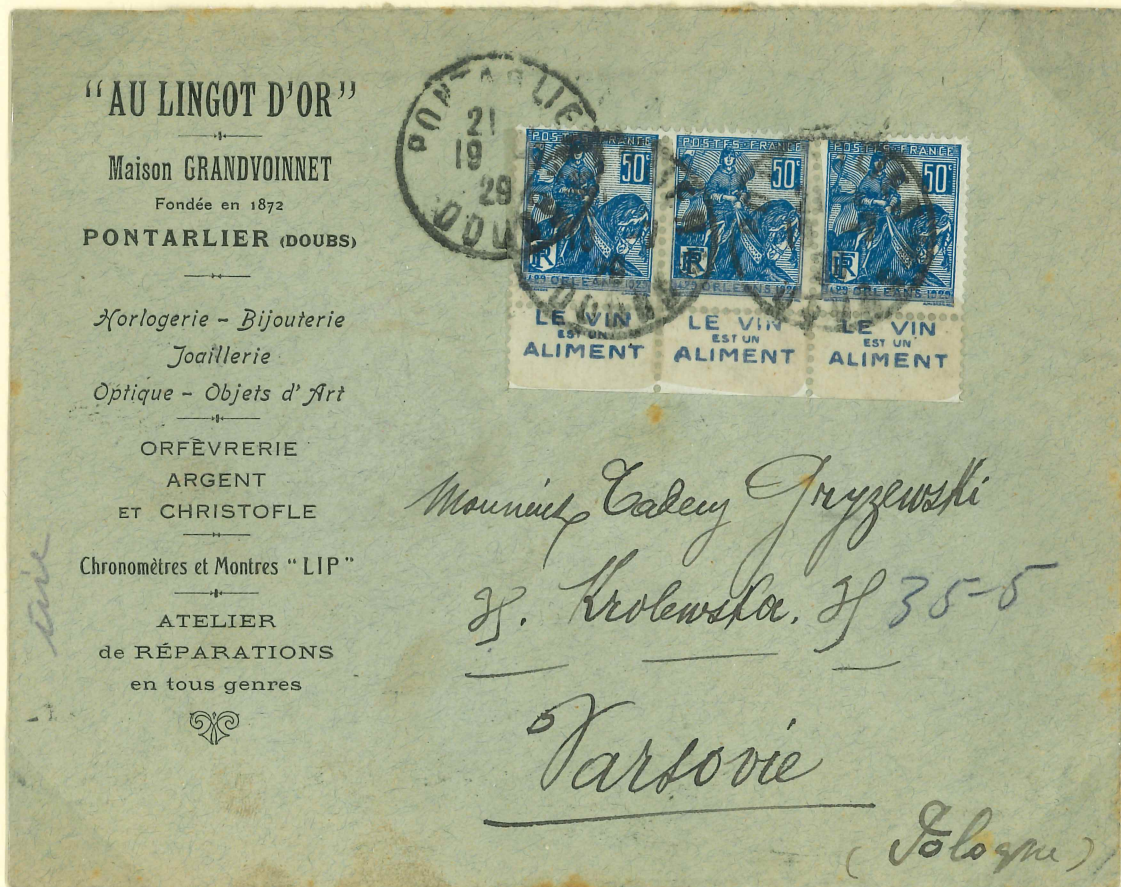 "AU LINGOT D'OR"
Maison GRANDVOINNET
Fondée en 1872
PONTARLIER (DOUBS)
Horlogerie - Bijouterie
Joaillerie
Optique - Objets d'Art
ORFÈVRERIE
ARGENT
ET CHRISTOFLE
Chronomètres et Montres "LIP"
ATELIER
de RÉPARATIONS
en tous genres
PONTARLIE
21
19
29
DOUBS
POSTES FRANCE
50c
RF
429 ORLEANS 1929
LE VIN
EST UN
ALIMENT
POSTES FRANCE
50c
RF
429 ORLEANS 1929
LE VIN
EST UN
ALIMENT
POSTES FRANCE
50c
RF
429 ORLEANS 1929
LE VIN
EST UN
ALIMENT
Monsieur Gryzewski
Krolewska. 35-5
Varsovie
(Pologne)